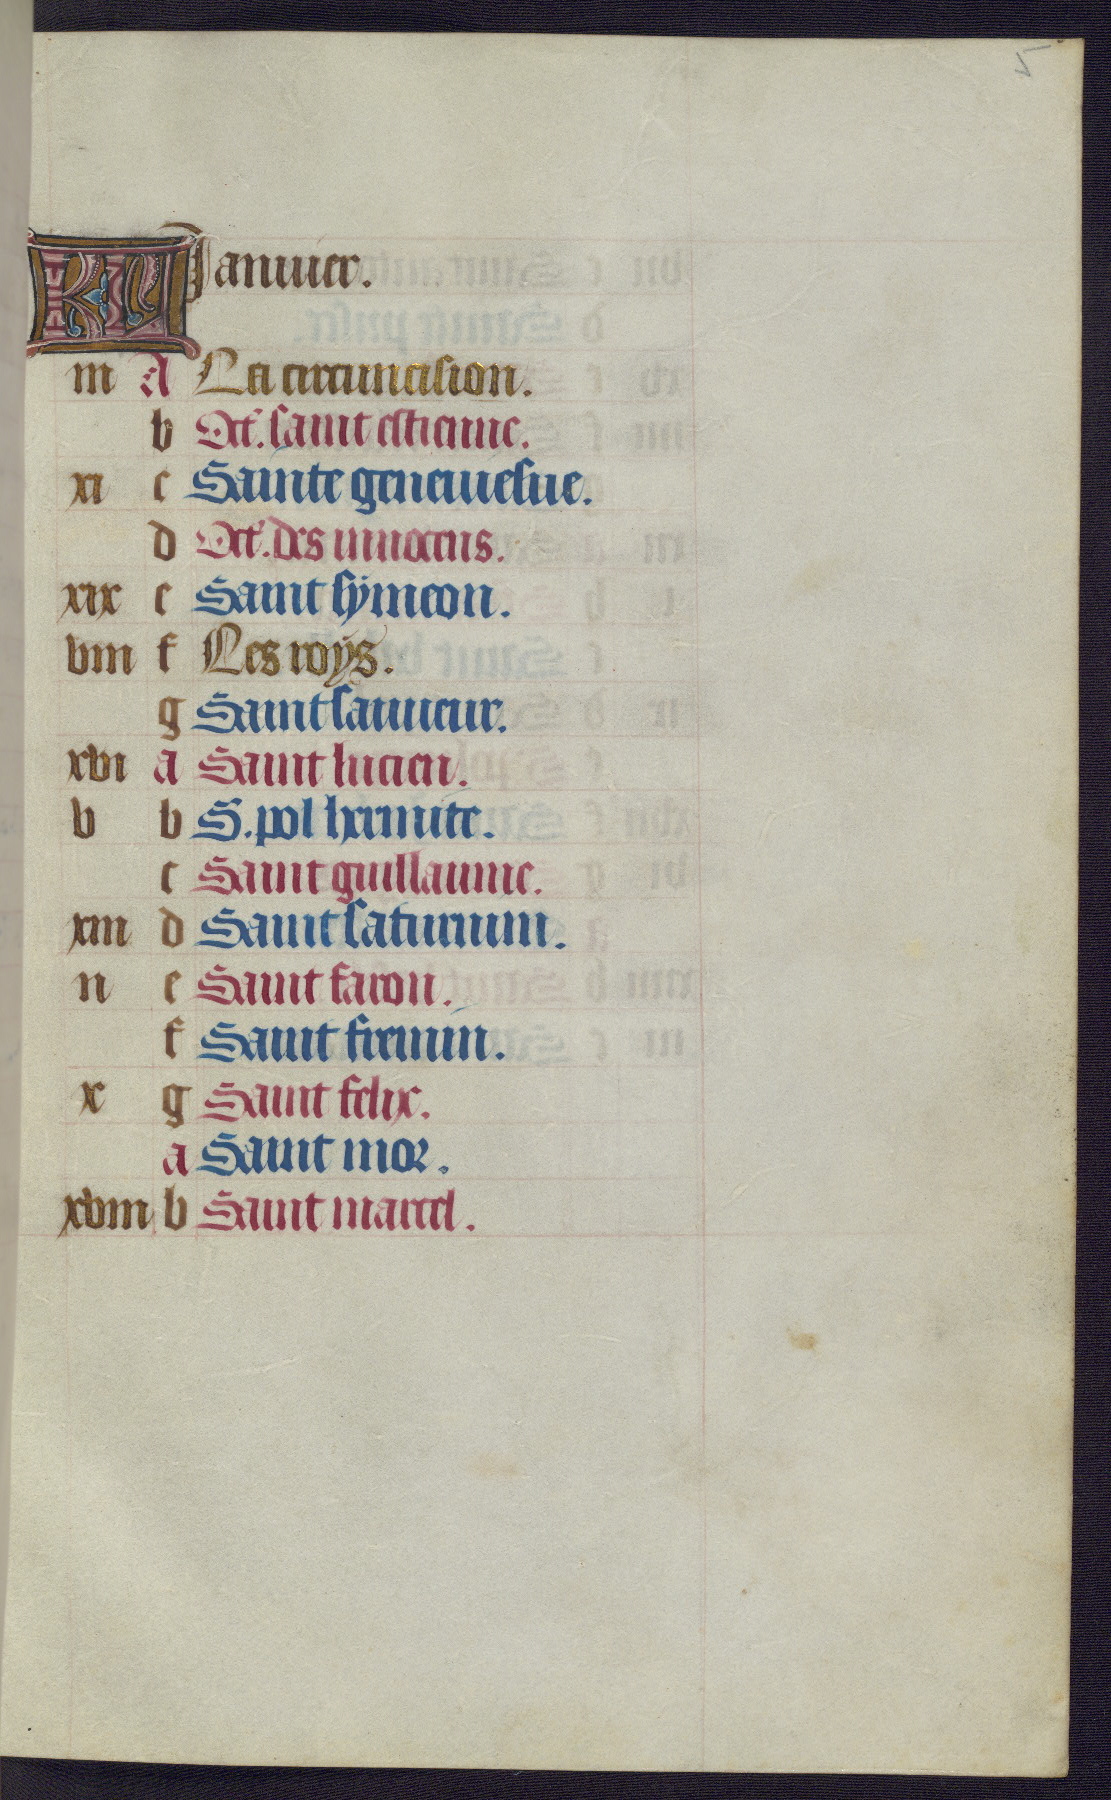 5
KL Januier.
iii A La circuncision.
b Oct. saint estienne.
xi c Sainte geneuiesue.
d Oct. des innocens.
xix e Saint symeon.
viii f Les roys.
g Saint sauueur.
xvi a Saint lucien.
v b S. pol hermite.
c Saint guillaume.
xiii d Saint saturnin.
ii e Saint faron.
f Saint fremin.
x g Saint felix.
a Saint mor.
xviii b Saint marcel.